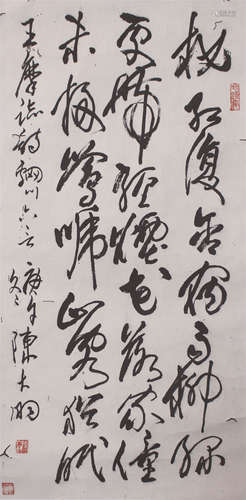 桃紅復含宿雨柳綠
更帶朝煙花落家僮
未掃鶯啼山客猶眠
王摩詰詩輞川六言 庚午冬 陳大羽